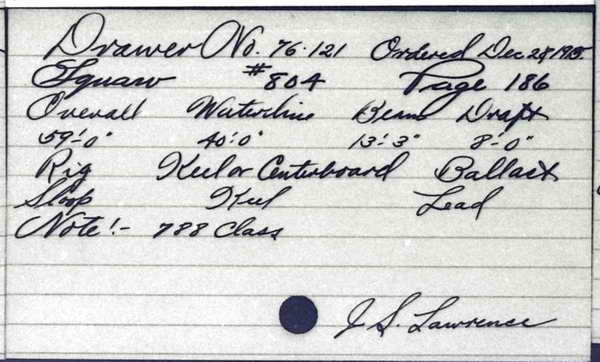 Drawer No. 76-121 Ordered Dec 28 1915.
Squaw #804 Page 186
Overall Waterline Beam Draft
59'-0" 40'-0" 13'-3" 8'-0"
Rig Keel or Centerboard Ballast
Sloop Keel Lead
Note!- 788 Class
J. S. Lawrence